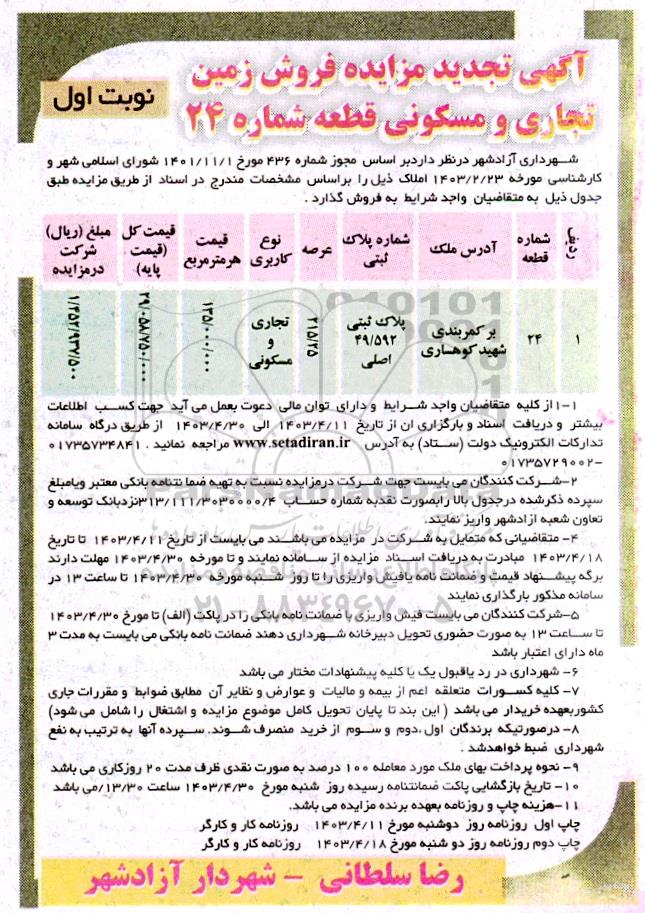 آگهی تجدید مزایده فروش زمین
تجاری و مسکونی قطعه شماره ۲۴
نوبت اول
شهرداری آزادشهر درنظر داردبر اساس مجوز شماره ۴۳۶ مورخ ۱۴۰۱/۱۱/۱ شورای اسلامی شهر و
کارشناسی مورخه ۱۴۰۳/۲/۲۳ املاک ذیل را براساس مشخصات مندرج در اسناد از طریق مزایده طبق
جدول ذیل به متقاضیان واجد شرایط به فروش گذارد .
ردیف | شماره قطعه | آدرس ملک | شماره پلاک ثبتی | عرصه | نوع کاربری | قیمت هرمترمربع | قیمت کل (قیمت پایه) | مبلغ (ریال) شرکت درمزایده
۱ | ۲۴ | بر کمربندی شهید کوهساری | پلاک ثبتی ۴۹/۵۹۲ اصلی | ۲۱۵/۲۵ | تجاری و مسکونی | ۱۳۵/۰۰۰/۰۰۰ | ۲۹/۰۵۸/۷۵۰/۰۰۰ | ۱/۴۵۲/۹۳۷/۵۰۰
۱-۱از کلیه متقاضیان واجد شرایط و دارای توان مالی دعوت بعمل می آید جهت کسب اطلاعات
بیشتر و دریافت اسناد و بارگزاری ان از تاریخ ۱۴۰۳/۴/۱۱ الی ۱۴۰۳/۴/۳۰ از طریق درگاه سامانه
تدارکات الکترونیک دولت (ستاد) به آدرس www.setadiran.ir مراجعه نمائید . ۰۱۷۳۵۷۳۴۸۴۱
-۰۱۷۳۵۷۲۹۰۰۲
۲-شرکت کنندگان می بایست جهت شرکت درمزایده نسبت به تهیه ضما نتنامه بانکی معتبر ویامبلغ
سپرده ذکرشده درجدول بالا رابصورت نقدبه شماره حساب ۳۱۳/۱۱۱/۳۰۳۰۰۰۰/۴نزدبانک توسعه و
تعاون شعبه ازادشهر واریز نمایند.
۴- متقاضیانی که متمایل به شرکت در مزایده می باشند می بایست از تاریخ ۱۴۰۳/۴/۱۱ تا تاریخ
۱۴۰۳/۴/۱۸ مبادرت به دریافت اسناد مزایده از سامانه نمایند و تا مورخه ۱۴۰۳/۴/۳۰ مهلت دارند
برگه پیشنهاد قیمت و ضمانت نامه یافیش واریزی را تا روز شنبه مورخه ۱۴۰۳/۴/۳۰ تا ساعت ۱۳ در
سامانه مذکور بارگذاری نمایند
۵-شرکت کنندگان می بایست فیش واریزی یا ضمانت نامه بانکی را در پاکت (الف) تا مورخ ۱۴۰۳/۴/۳۰
تا ساعت ۱۳ به صورت حضوری تحویل دبیرخانه شهرداری دهند ضمانت نامه بانکی می بایست به مدت ۳
ماه دارای اعتبار باشد
۶- شهرداری در رد یاقبول یک یا کلیه پیشنهادات مختار می باشد
۷- کلیه کسورات متعلقه اعم از بیمه و مالیات و عوارض و نظایر آن مطابق ضوابط و مقررات جاری
کشوربعهده خریدار می باشد ( این بند تا پایان تحویل کامل موضوع مزایده و اشتغال را شامل می شود)
۸- درصورتیکه برندگان اول ،دوم و سوم از خرید منصرف شوند. سپرده آنها به ترتیب به نفع
شهرداری ضبط خواهدشد .
۹- نحوه پرداخت بهای ملک مورد معامله ۱۰۰ درصد به صورت نقدی ظرف مدت ۲۰ روزکاری می باشد
۱۰- تاریخ بازگشایی پاکت ضمانتنامه رسیده روز شنبه مورخ ۱۴۰۳/۴/۳۰ ساعت ۱۳/۳۰/می باشد
۱۱-هزینه چاپ و روزنامه بعهده برنده مزایده می باشد.
چاپ اول روزنامه روز دوشنبه مورخ ۱۴۰۳/۴/۱۱ روزنامه کار و کارگر
چاپ دوم روزنامه روز دو شنبه مورخ ۱۴۰۳/۴/۱۸ روزنامه کار و کارگر
رضا سلطانی - شهردار آزادشهر
۰۲۱-۸۸۳۴۹۶۷۰-۵